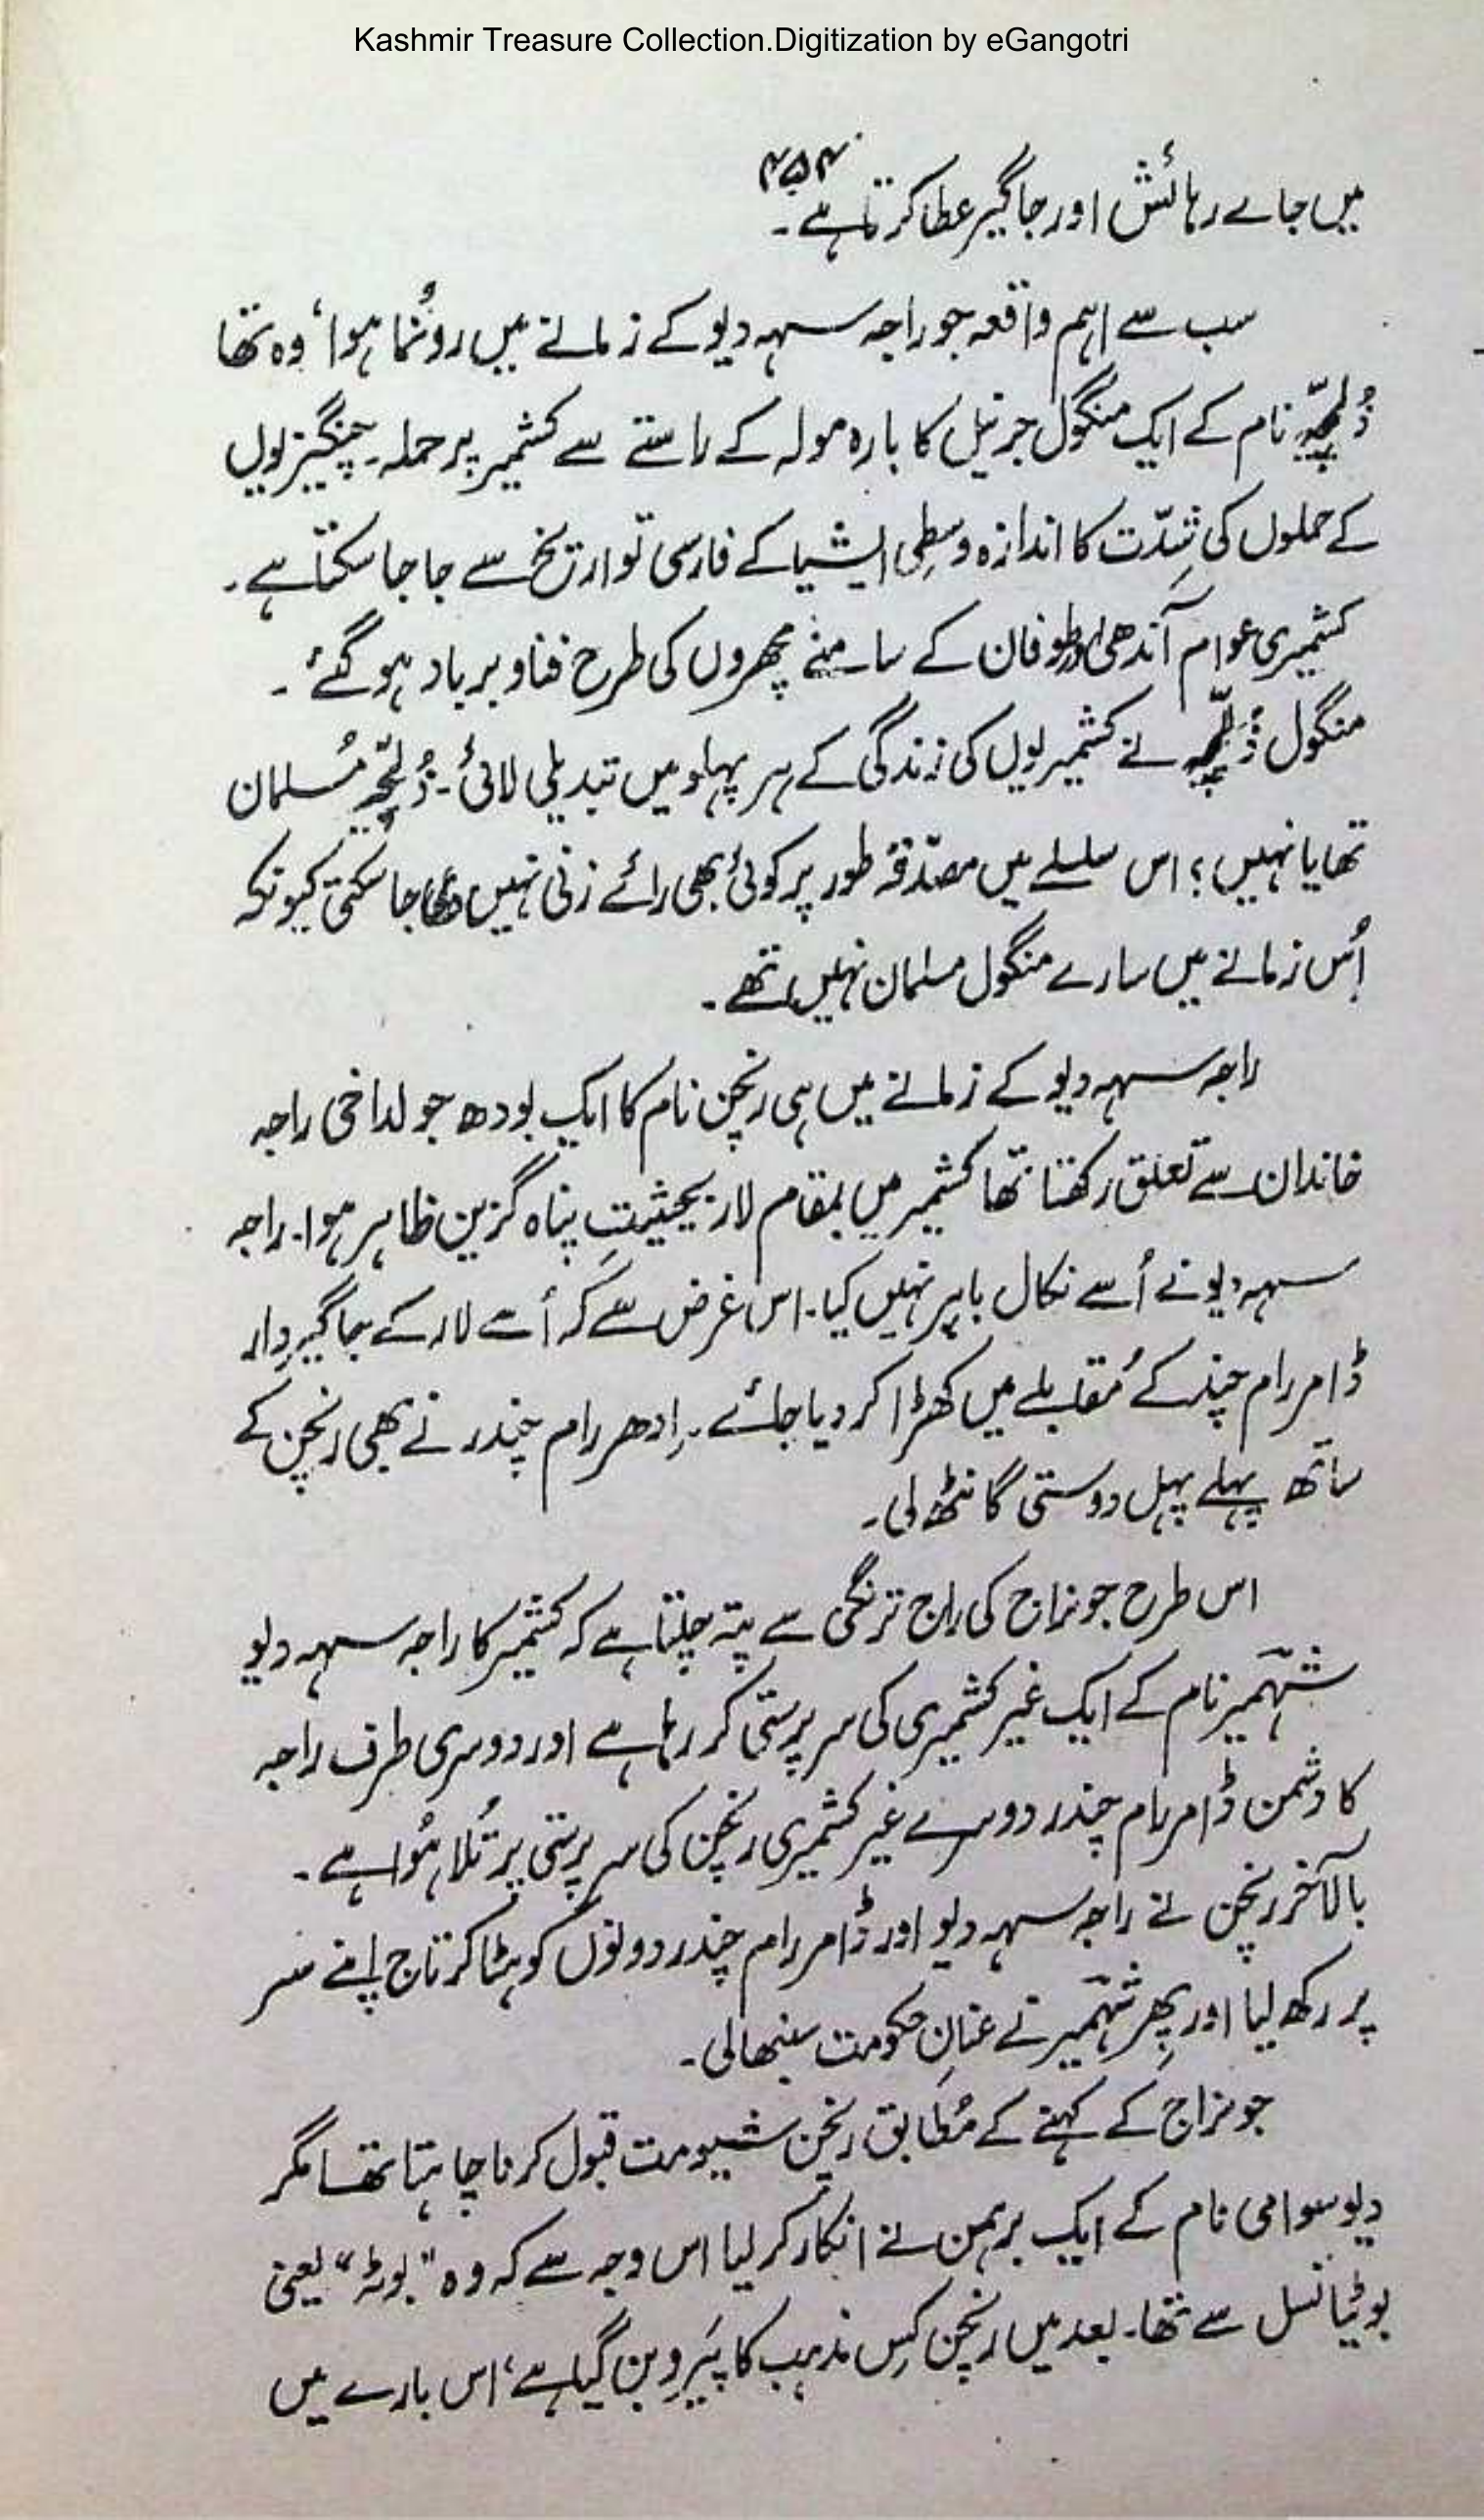 Kashmir Treasure Collection.Digitization by eGangotri
۴۵۴
میں جاے رہائش اور جاگیر عطا کرتا ہے۔
سب سے اہم واقعہ جو راجہ سہہ دیو کے زمانے میں رونُما ہوا، وہ تھا
ذُلچہّ نام کے ایک منگول جرنیل کا بارہ مولہ کے راستے سے کشمیر پر حملہ۔ چنگیزیوں
کے حملوں کی شِدّت کا اندازہ وسطِی ایشیا کے فارسی تواریخ سے جا جا سکتا ہے۔
کشمیری عوام آندھی اور طوفان کے سامنے مچھروں کی طرح فنا و برباد ہو گئے۔
منگول ذُلچہّ نے کشمیریوں کی زندگی کے ہر پہلو میں تبدیلی لائی۔ ذُلچہّ مُسلمان
تھا یا نہیں؛ اس سلسلے میں مصدّقہ طور پر کوئی بھی رائے زنی نہیں کی جا سکتی کیونکہ
اُس زمانے میں سارے منگول مسلمان نہیں تھے۔
راجہ سہہ دیو کے زمانے میں ہی رنچن نام کا ایک بودھ جو لداخی راجہ
خاندان سے تعلق رکھتا تھا کشمیر میں بمقام لار بحیثیتِ پناہ گزین ظاہر ہوا۔ راجہ
سہہ دیو نے اُسے نکال باہر نہیں کیا۔ اس غرض سے کہ اُسے لار کے جاگیردار
ڈامر رام چندر کے مُقابلے میں کھڑا کر دیا جائے۔ اِدھر رام چندر نے بھی رنچن کے
ساتھ پہلے پہل دوستی گانٹھ لی۔
اس طرح جونراج کی راج ترنگنی سے پتہ چلتا ہے کہ کشمیر کا راجہ سہہ دیو
شہمیر نام کے ایک غیر کشمیری کی سرپرستی کر رہا ہے اور دوسری طرف راجہ
کا دشمن ڈامر رام چندر دوسرے غیر کشمیری رنچن کی سرپرستی پر تُلا ہُوا ہے۔
بالآخر رنچن نے راجہ سہہ دیو اور ڈامر رام چندر دونوں کو ہٹا کر تاج اپنے سر
پر رکھ لیا اور پھر شہمیر نے عنانِ حکومت سنبھالی۔
جونراج کے کہنے کے مُطابق رنچن شیو مت قبول کرنا چاہتا تھا مگر
دیو سوامی نام کے ایک برہمن نے انکار کر لیا اس وجہ سے کہ وہ "بوٹہ" یعنی
بوٹیا نسل سے تھا۔ بعد میں رنچن کِس مذہب کا پَیرو بن گیا ہے، اس بارے میں